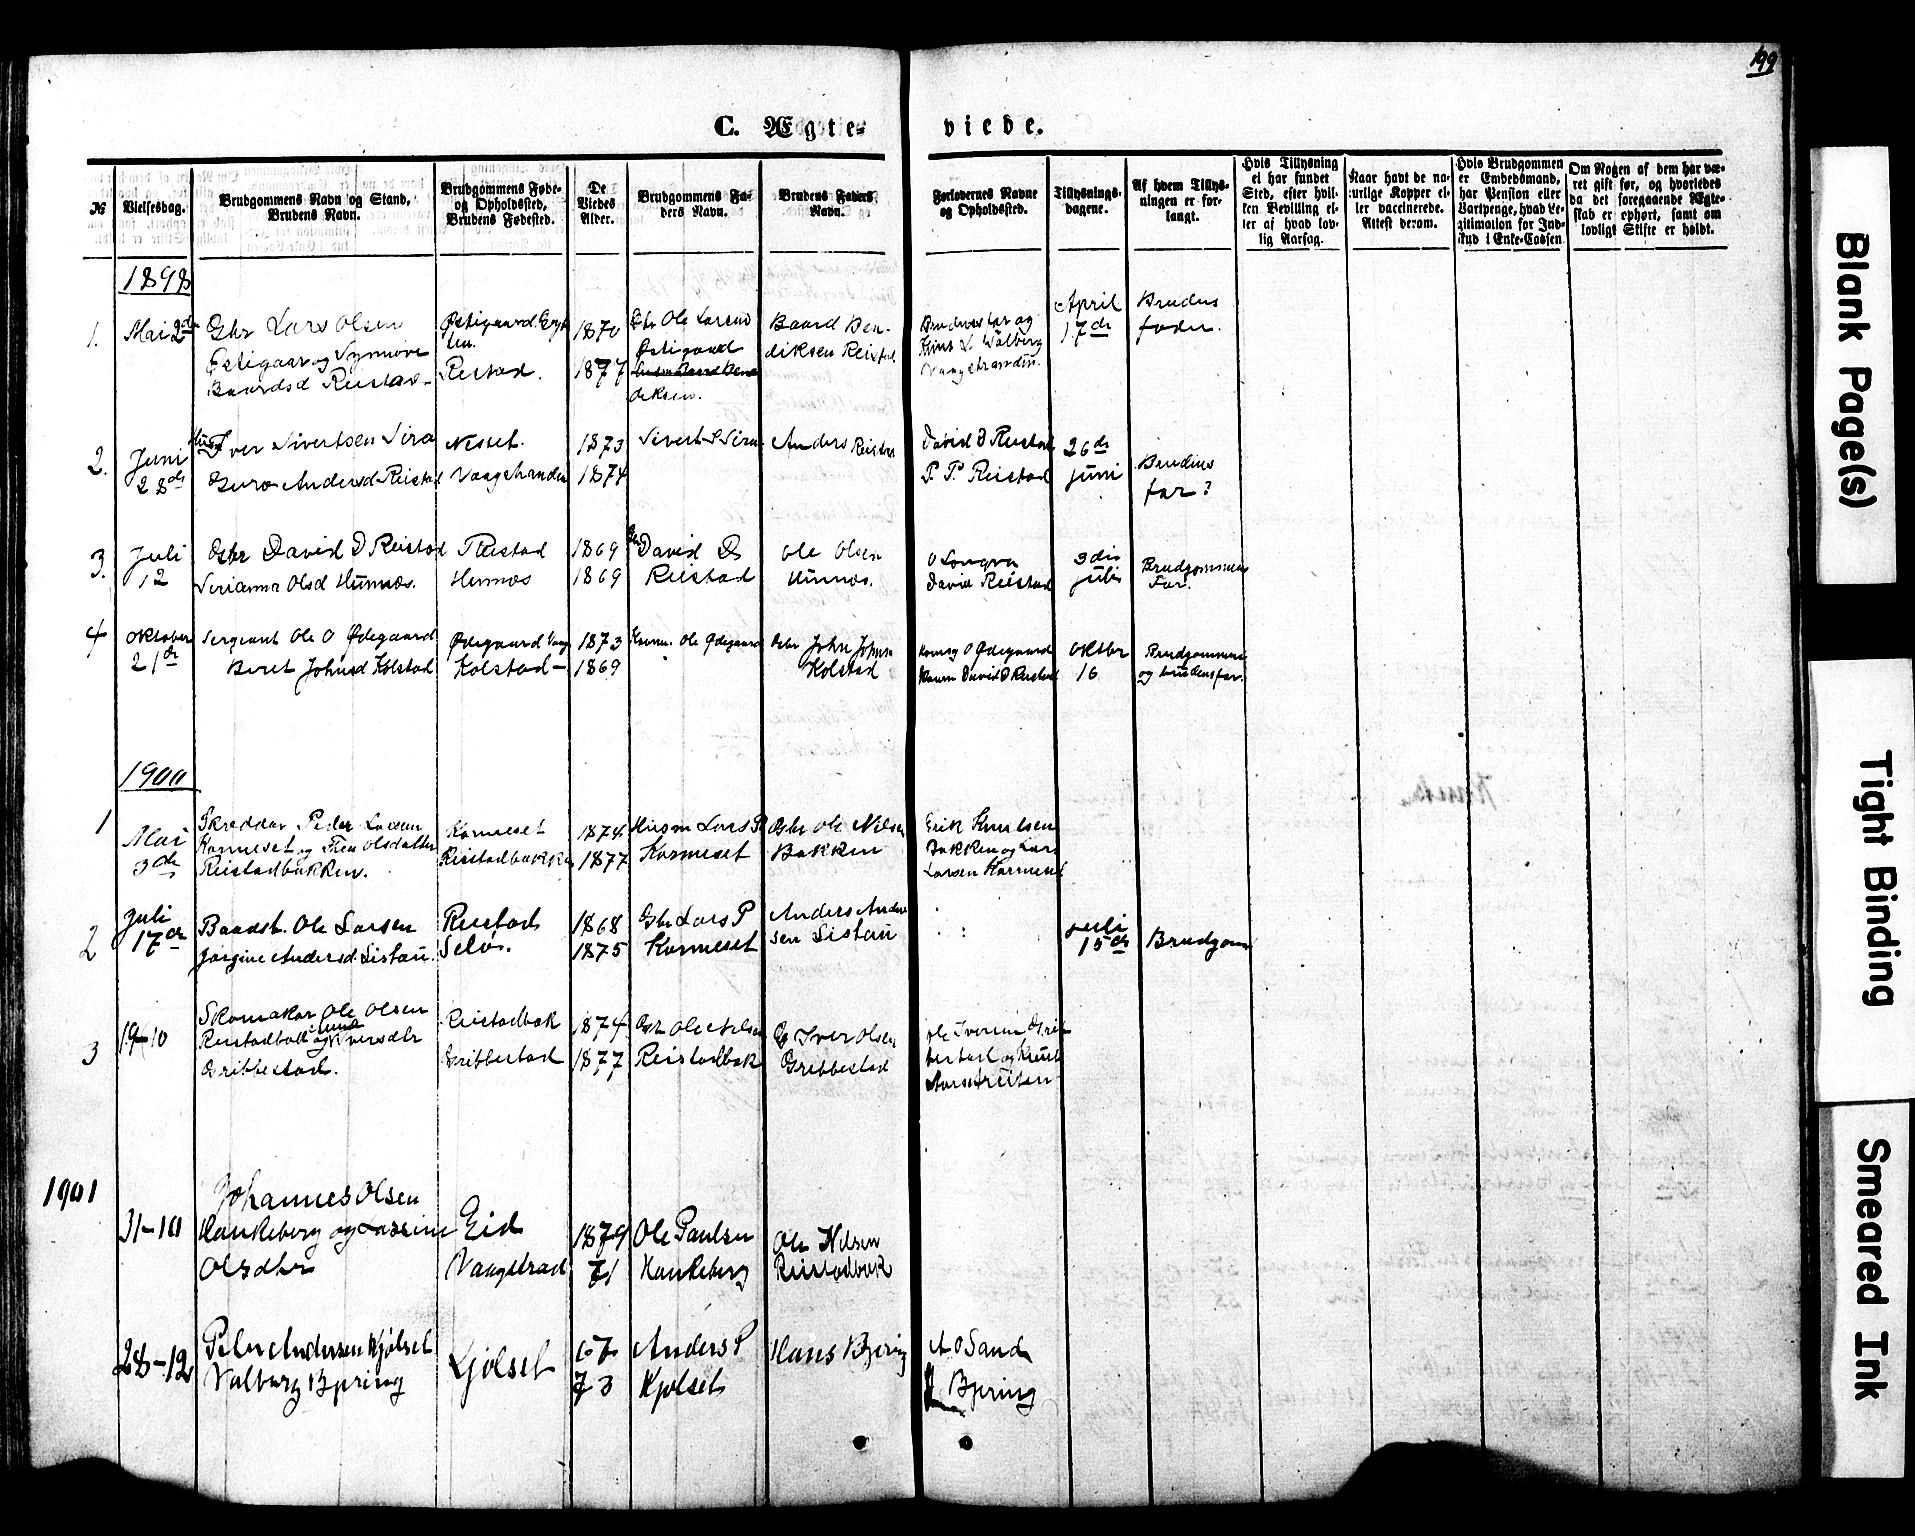 199
C. Ægte-
viede.
№
Vielsesdag.
Brudgommens Navn og Stand,
Brudens Navn.
Brudgommens Føde-
og Opholdssted,
Brudens Fødested.
De
Viedes
Alder.
Brudgommens Fa-
ders Navn.
Brudens Faders
Navn.
Forlovernes Navne
og Opholdssted.
Tillysnings-
dagene.
Af hvem Tillys-
ningen er for-
langt.
Hvis Tillysning
ei har fundet
Sted, efter hvil-
ken Bevilling el-
ler af hvad lov-
lig Aarsag.
Naar havt de na-
turlige Kopper el-
ler vaccinerede.
Attest derom.
Hvis Brudgommen
er Embedsmand,
har Pension eller
Vartpenge, hvad Le-
gitimation for Ind-
skud i Enke-Cassen
Om Nogen af dem har væ-
ret gift før, og hvorledes
da det foregaaende Ægte-
skab er ophørt, samt om
lovligt Skifte er holdt.
1898
1.
Mai 2den
Gbr Lars Olsen
Østigaar og Synnøve
Baardsd Reistad
Østigaard
Reistad.
1870
1877
Gbr Ole Larsen
Østigaard
diksen.
Baard Ben-
diksen Reistad
Vaagstranden.
April
17de
Brudens
fader.
2.
Juni
28de
Iver Sivertsen Sira
Guro Andersd Reistad
Nesset.
Vaagstranden
1873
1874
Sivert S Sira
Anders Reistad
David D Reistad
P. P. Reistad
26de
juni
Brudens
far?
3.
Juli
12
Gbr David D Reistad
Serianna Olsd Hunnes.
Reistad
Hunnes
1869
1869
David D
Reistad
Ole Olsen
Hunnes.
David Reistad
3die
juli
Brudgommens
Far.
4
Oktober
21de
Sergeant Ole O Ødegaard
Beret Johnsd Kolstad
Ødegaard Vaag
Kolstad
1873
1869
Ole Ødegaard
John John
Kolstad
O Ødegaard
David D Reistad
Oktbr
16
Brudgommens
og brudens far.
1900
1
Mai
3de
Skredder Peder Larsen
Kormeset og Olsdatter
Reistadbakken.
Kormeset
Reistadbakken
1874
1877
Husm Lars P
Kormeset
Gbr Ole Nilsen
Bakken
Erik Knutsen
Bakken og Lars
Larsen Kormeset
2
Juli
17de
Baadsb. Ole Larsen
Jørgine Andersd. Listau.
Reistad
Selo.
1868
1875
Gbr Lars P
Kormeset
Anders Ander
sen Listau
juli
15de
Brudgom
3
19-10
Skomaker Ole Olsen
Reistadbak og Iversdtr
Gribbestad.
Reistadbak
Gribbestad
1874
1877
Gbr Ole Nilsen
Reistadbak
G Iver Olsen
Gribbestad
Ole Iversen Grib
bestad og Knut
1901
31-10
Johannes Olsen
Haukeberg og Lassine
Olsdtr
Eid
Vaagstrad
1879
71
Ole Paulsen
Haukeberg
Ole Nilsen
Reistadbak
28-12
Peter Andersen Kjølset
Valborg Bjering
Kjølset
67
73
Anders P
Kjølset
Hans Bjering
A O Sand
H Bjering
Blank Page(s)
Tight Binding
Smeared Ink